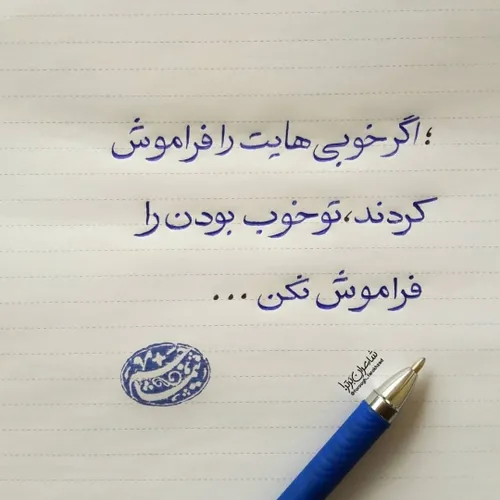 ؛ اگر خوبی هایت را فراموش
کردند، تو خوب بودن را
فراموش نکن ...